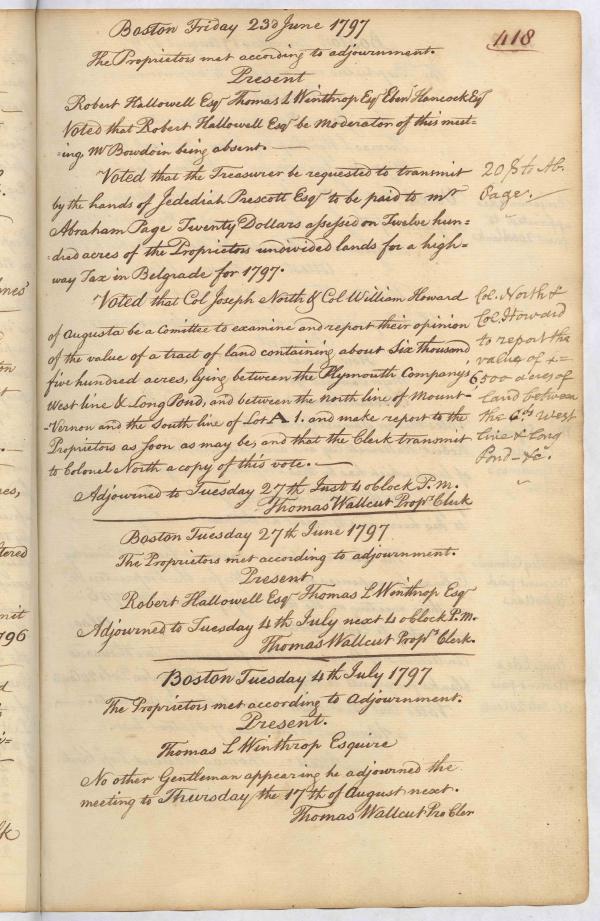 418
Boston Friday 23d June 1797
The Proprietors met according to adjournment.
Present
Robert Hallowell Esqr Thomas L Winthrop Esqr Eben Hancock Esqr
Voted that Robert Hallowell Esqr be Moderator of this meet=
=ing, Mr Bowdoin being absent. —
Voted that the Treasurer be requested to transmit
by the hands of Jedediah Prescott Esqr to be paid to mr
Abraham Page Twenty Dollars assessed on Twelve hun=
=dred acres of the Proprietors undivided lands for a high=
way Tax in Belgrade for 1797.
20$ to Ab.
Page.
Voted that Col Joseph North & Col William Howard
of Augusta be a Comittee to examine and report their opinion
of the value of a tract of land containing about Six thousand
five hundred acres, lying between the Plymouth Company's
West line & Long Pond, and between the north line of Mount-
-Vernon and the South line of Lot A 1. and make report to the
Proprietors as soon as may be, and that the Clerk transmit
to Colonel North a copy of this vote. —
Col. North &
Col. Howard
to report the
value of
6,500 acres of
Land between
the West
line & Long
Pond - &c.
Adjourned to Tuesday 27th Inst 4 oblock P.M.
Thomas Wallcut Propr Clerk
Boston Tuesday 27th June 1797
The Proprietors met according to adjournment.
Present
Robert Hallowell Esqr Thomas L Winthrop Esqr
Adjourned to Tuesday 4th July next 4 oblock P.M.
Thomas Wallcut Propr Clerk.
Boston Tuesday 4th July 1797
The Proprietors met according to adjournment.
Present.
Thomas L Winthrop Esquire
No other Gentleman appearing he adjourned the
meeting to Thursday the 17th of August next.
Thomas Wallcut Pro Cler